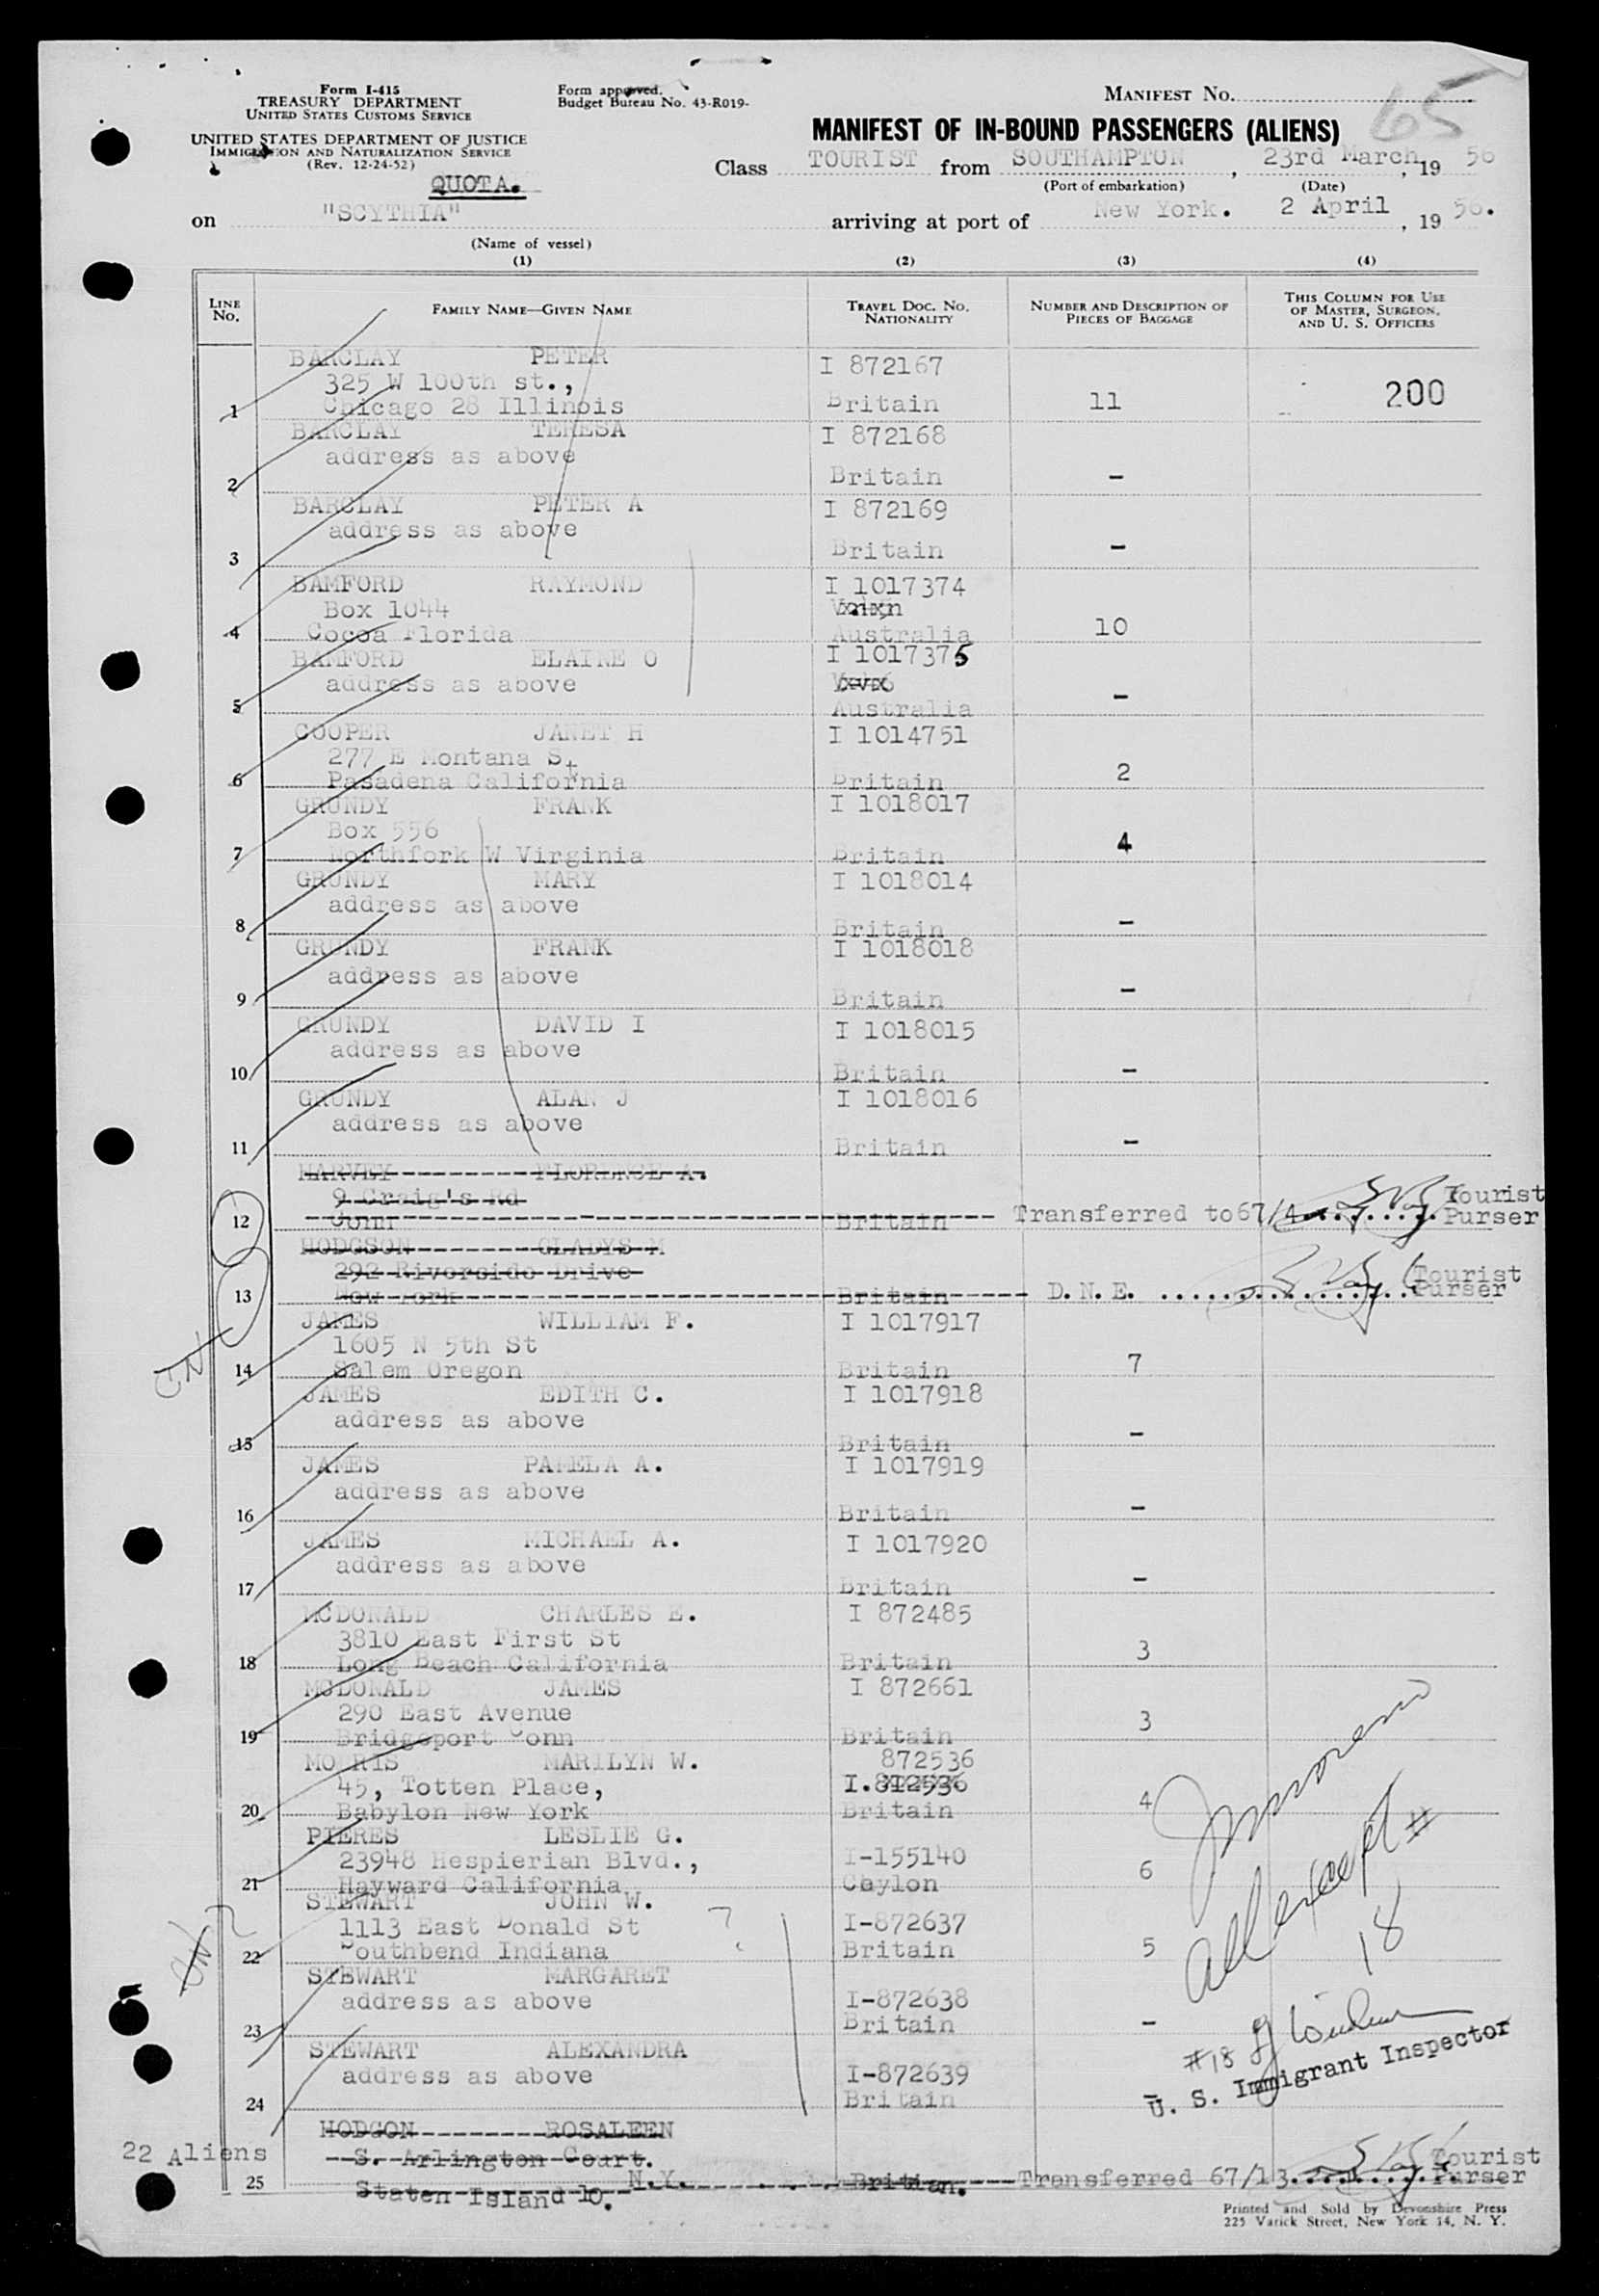 Form I-415
TREASURY DEPARTMENT
UNITED STATES CUSTOMS SERVICE
UNITED STATES DEPARTMENT OF JUSTICE
IMMIGRATION AND NATURALIZATION SERVICE
(Rev. 12-24-52)
Form approved.
Budget Bureau No. 43-R019-
MANIFEST NO.
65
MANIFEST OF IN-BOUND PASSENGERS (ALIENS)
QUOTA.
Class TOURIST from SOUTHAMPTON, 23rd March, 19 56
(Port of embarkation) (Date)
on "SCYTHIA" arriving at port of New York. 2 April, 19 56.
(Name of vessel)
(1) (2) (3) (4)
LINE No. FAMILY NAME—GIVEN NAME TRAVEL DOC. NO. NATIONALITY NUMBER AND DESCRIPTION OF PIECES OF BAGGAGE THIS COLUMN FOR USE OF MASTER, SURGEON, AND U. S. OFFICERS
BARCLAY PETER I 872167
325 W 100th st.,
1 Chicago 28 Illinois Britain 11 200
BARCLAY TERESA I 872168
address as above
2 Britain -
BARCLAY PETER A I 872169
address as above
3 Britain -
BAMFORD RAYMOND I 1017374
Box 1044
4 Cocoa Florida Australia 10
BAMFORD ELAINE O I 1017375
address as above
5 Australia -
COOPER JANET H I 1014751
277 E Montana St
6 Pasadena California Britain 2
GRUNDY FRANK I 1018017
Box 556
7 Northfork W Virginia Britain 4
GRUNDY MARY I 1018014
address as above
8 Britain -
GRUNDY FRANK I 1018018
address as above
9 Britain -
GRUNDY DAVID I I 1018015
address as above
10 Britain -
GRUNDY ALAN J I 1018016
address as above
11 Britain -
HARVEY FLORENCE A.
9 Craig's Rd
12 Conn Britain Transferred to 67/4 Tourist Purser
HODGSON GLADYS M
292 Riverside Drive
13 New York Britain D.N.E. Tourist Purser
JAMES WILLIAM F. I 1017917
1605 N 5th St
14 Salem Oregon Britain 7
JAMES EDITH C. I 1017918
address as above
15 Britain -
JAMES PAMELA A. I 1017919
address as above
16 Britain -
JAMES MICHAEL A. I 1017920
address as above
17 Britain -
MCDONALD CHARLES E. I 872485
3810 East First St
18 Long Beach California Britain 3
MCDONALD JAMES I 872661
290 East Avenue
19 Bridgeport Conn Britain 3
MORRIS MARILYN W. 872536
45, Totten Place, I.812536
20 Babylon New York Britain 4
PIERES LESLIE G.
23948 Hespierian Blvd., I-155140
21 Hayward California Ceylon 6
STEWART JOHN W.
1113 East Donald St ? I-872637
22 Southbend Indiana Britain 5
STEWART MARGARET
address as above I-872638
23 Britain -
STEWART ALEXANDRA
address as above I-872639
24 Britain -
all except #
18
#18
U. S. Immigrant Inspector
HODGON ROSALEEN
22 Aliens
S. Arlington Court.
25 Staten Island 10. N.Y. Britian. Transferred 67/13 Tourist Purser
Printed and Sold by Devonshire Press
225 Varick Street, New York 14, N. Y.